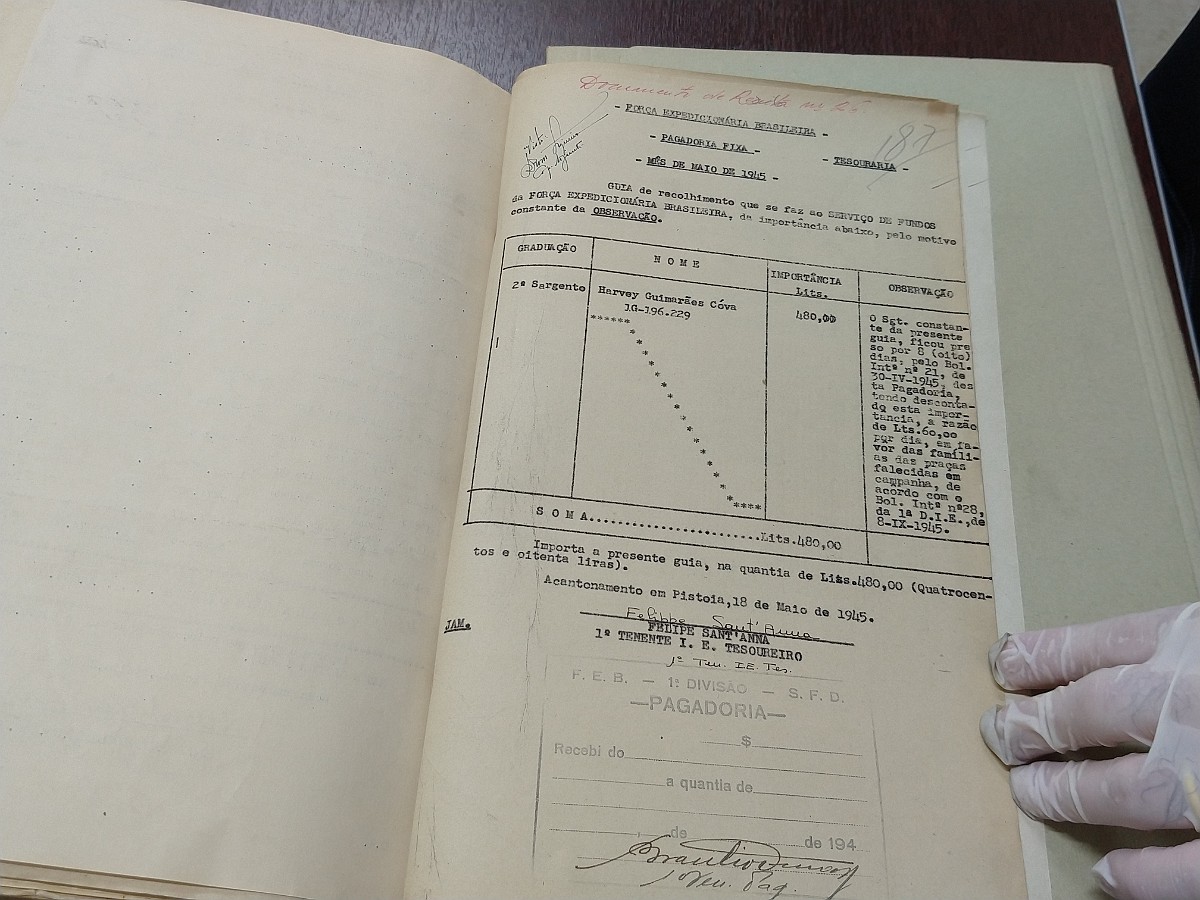 Documento de Receita nº
187
- FORÇA EXPEDICIONÁRIA BRASILEIRA -
Visto
- PAGADORIA FIXA -
- TESOURARIA -
- MÊS DE MAIO DE 1945 -
GUIA de recolhimento que se faz ao SERVIÇO DE FUNDOS
da FORÇA EXPEDICIONÁRIA BRASILEIRA, da importância abaixo, pelo motivo
constante da OBSERVAÇÃO.
GRADUAÇÃO
N O M E
IMPORTÂNCIA
Lits.
OBSERVAÇÃO
2º Sargento
Harvey Guimarães Cóva
1G-196.229
480,00
O Sgt. constan-
te da presente
guia, ficou pre
so por 8 (oito)
dias, pelo Bol.
Intº nº 21, de
30-IV-1945, des
ta Pagadoria,
tendo desconta-
do esta impor-
tância, a razão
de Lts.60,00
por dia, em fa-
vor das famíli-
as das praças
falecidas em
campanha, de
acordo com o
Bol. Intº nº28,
da 1ª D.I.E.,de
8-IX-1945.
S O M A........................Lits.480,00
Importa a presente guia, na quantia de Lits.480,00 (Quatrocen-
tos e oitenta liras).
Acantonamento em Pistoia,18 de Maio de 1945.
Felippe Sant'Anna
JAM.
FELIPE SANT'ANNA
1º TENENTE I. E. TESOUREIRO
1º Ten. I.E. Tes.
F. E. B. — 1ª DIVISÃO — S. F. D.
—PAGADORIA—
$
Recebi do
a quantia de
, de de 194
1º Ten. Pag.